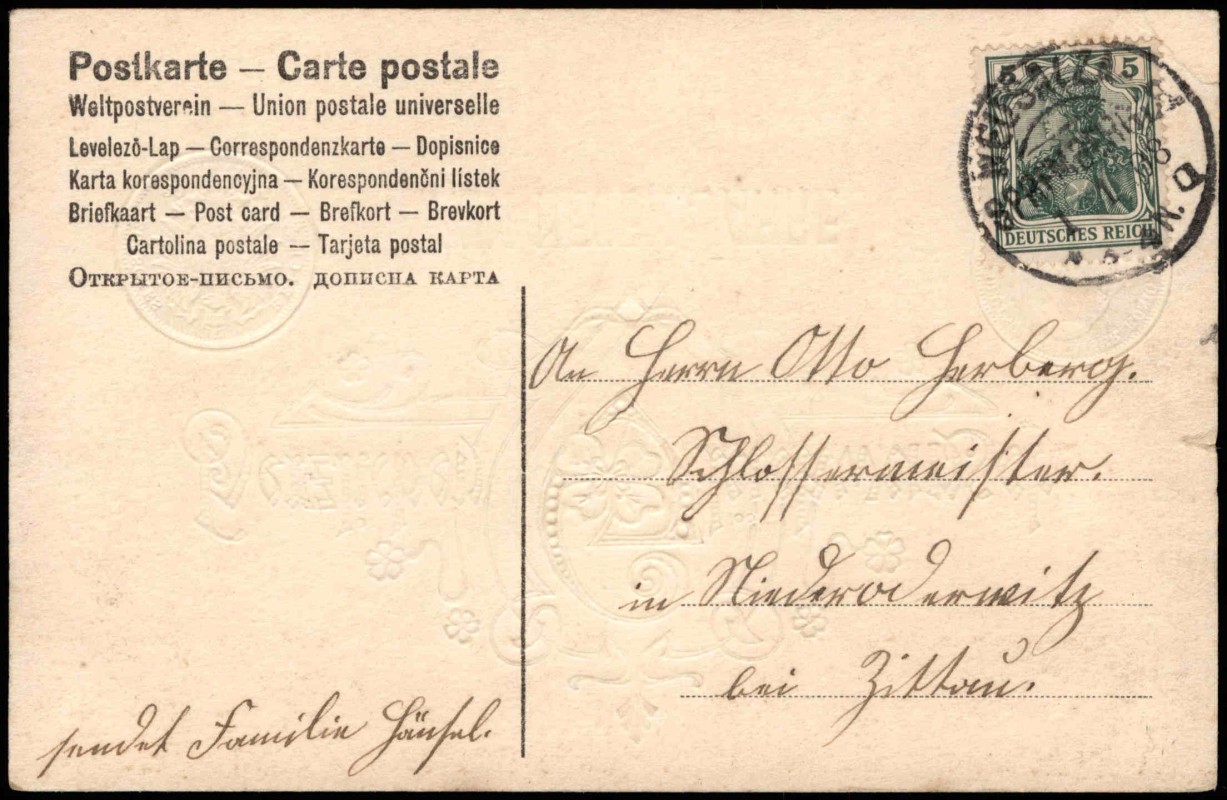 Postkarte — Carte postale
Weltpostverein — Union postale universelle
Levelező-Lap — Correspondenzkarte — Dopisnice
Karta korespondencyjna — Korespondenčni lístek
Briefkaart — Post card — Brefkort — Brevkort
Cartolina postale — Tarjeta postal
Открытое-письмо. дописна карта
5 5
DEUTSCHES REICH
An Herrn Otto Herberg.
Schlossermeister.
in Niederoderwitz
bei Zittau.
sendet Familie Hänsel.